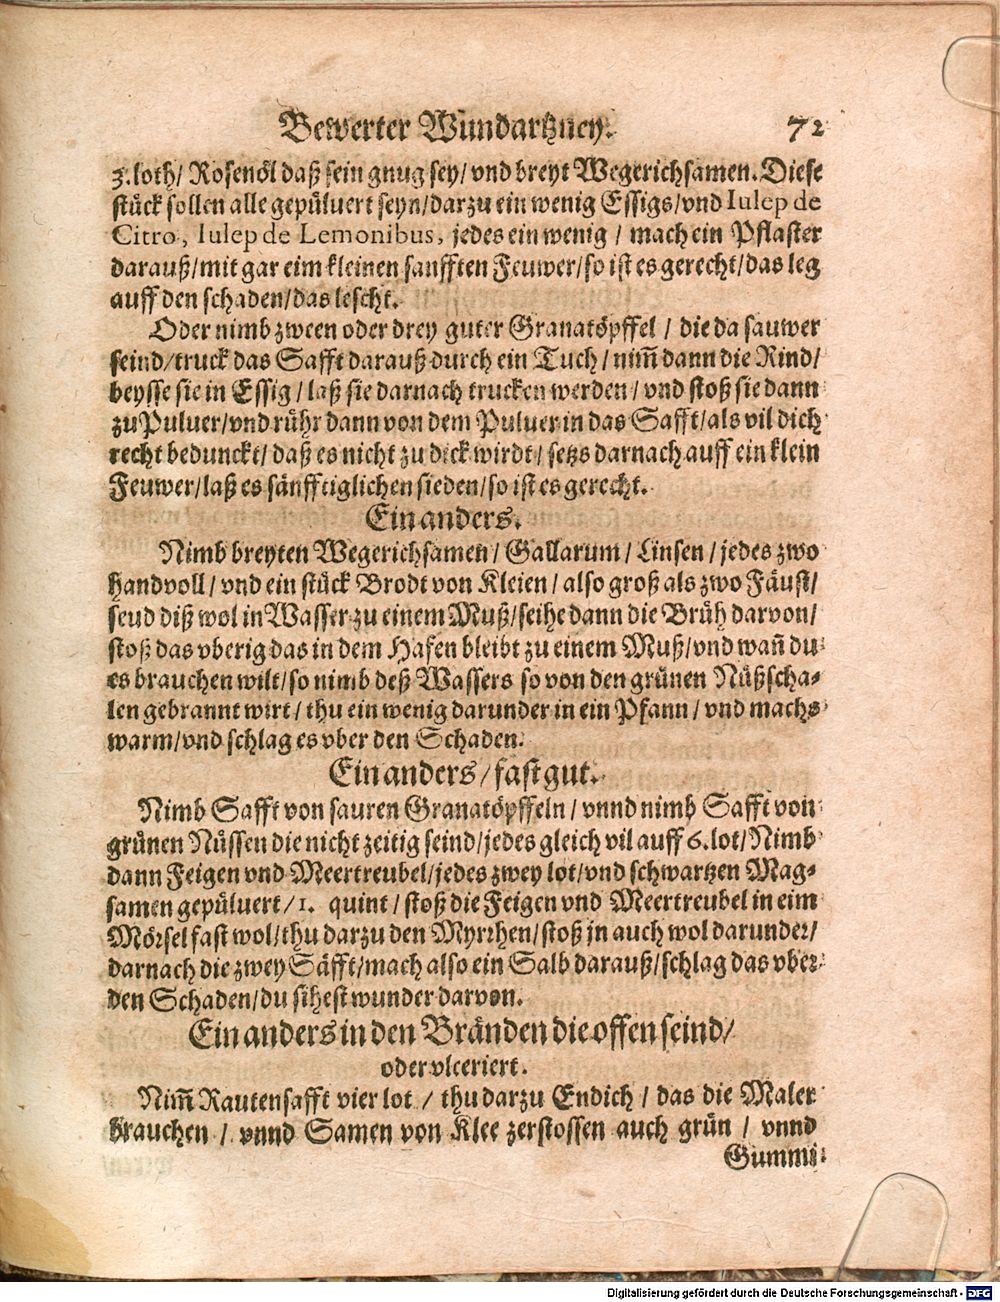 Bewerter Wundartzney. 72
3. loth/ Rosenöl daß sein gnug sey/ vnd breyt Wegerichsamen. Diese
stück sollen alle gepüluert seyn/ darzu ein wenig Essigs/ vnd Iulep de
Citro, Iulep de Lemonibus, jedes ein wenig / mach ein Pflaster
darauß/ mit gar eim kleinen sanfften Feuwer/ so ist es gerecht/ das leg
auff den schaden/ das lescht.
Oder nimb zween oder drey guter Granatöpffel / die da sauwer
seind/ truck das Safft darauß durch ein Tuch / nim̃ dann die Rind/
beysse sie in Essig / laß sie darnach trucken werden / vnd stoß sie dann
zu Puluer/ vnd rühr dann von dem Puluer in das Safft/ als vil dich
recht bedunckt/ daß es nicht zu dick wirdt/ setzs darnach auff ein klein
Feuwer/ laß es sänfftiglichen sieden/ so ist es gerecht.
Ein anders.
Nimb breyten Wegerichsamen / Gallarum / Linsen / jedes zwo
handvoll / vnd ein stück Brodt von Kleien / also groß als zwo Fäust/
seud diß wol in Wasser zu einem Muß/ seihe dann die Brüh darvon/
stoß das vberig das in dem Hafen bleibt zu einem Muß/ vnd wañ du
es brauchen wilt/ so nimb deß Wassers so von den grünen Nüßscha⸗
len gebrannt wirt / thu ein wenig darunder in ein Pfann / vnd machs
warm/ vnd schlag es vber den Schaden.
Ein anders / fast gut.
Nimb Safft von sauren Granatöpffeln / vnnd nimb Safft von
grünen Nüssen die nicht zeitig seind/ jedes gleich vil auff 6. lot/ Nimb
dann Feigen vnd Meertreubel/ jedes zwey lot/ vnd schwartzen Mag⸗
samen gepüluert / 1. quint / stoß die Feigen vnd Meertreubel in eim
Mörsel fast wol/ thu darzu den Myrrhen/ stoß jn auch wol darunder/
darnach die zwey Säfft/ mach also ein Salb darauß/ schlag das vber
den Schaden/ du sihest wunder darvon.
Ein anders in den Bränden die offen seind/
oder vlceriert.
Nim̃ Rautensafft vier lot / thu darzu Endich / das die Maler
brauchen / vnnd Samen von Klee zerstossen auch grün / vnnd
Gummi
Digitalisierung gefördert durch die Deutsche Forschungsgemeinschaft - DFG